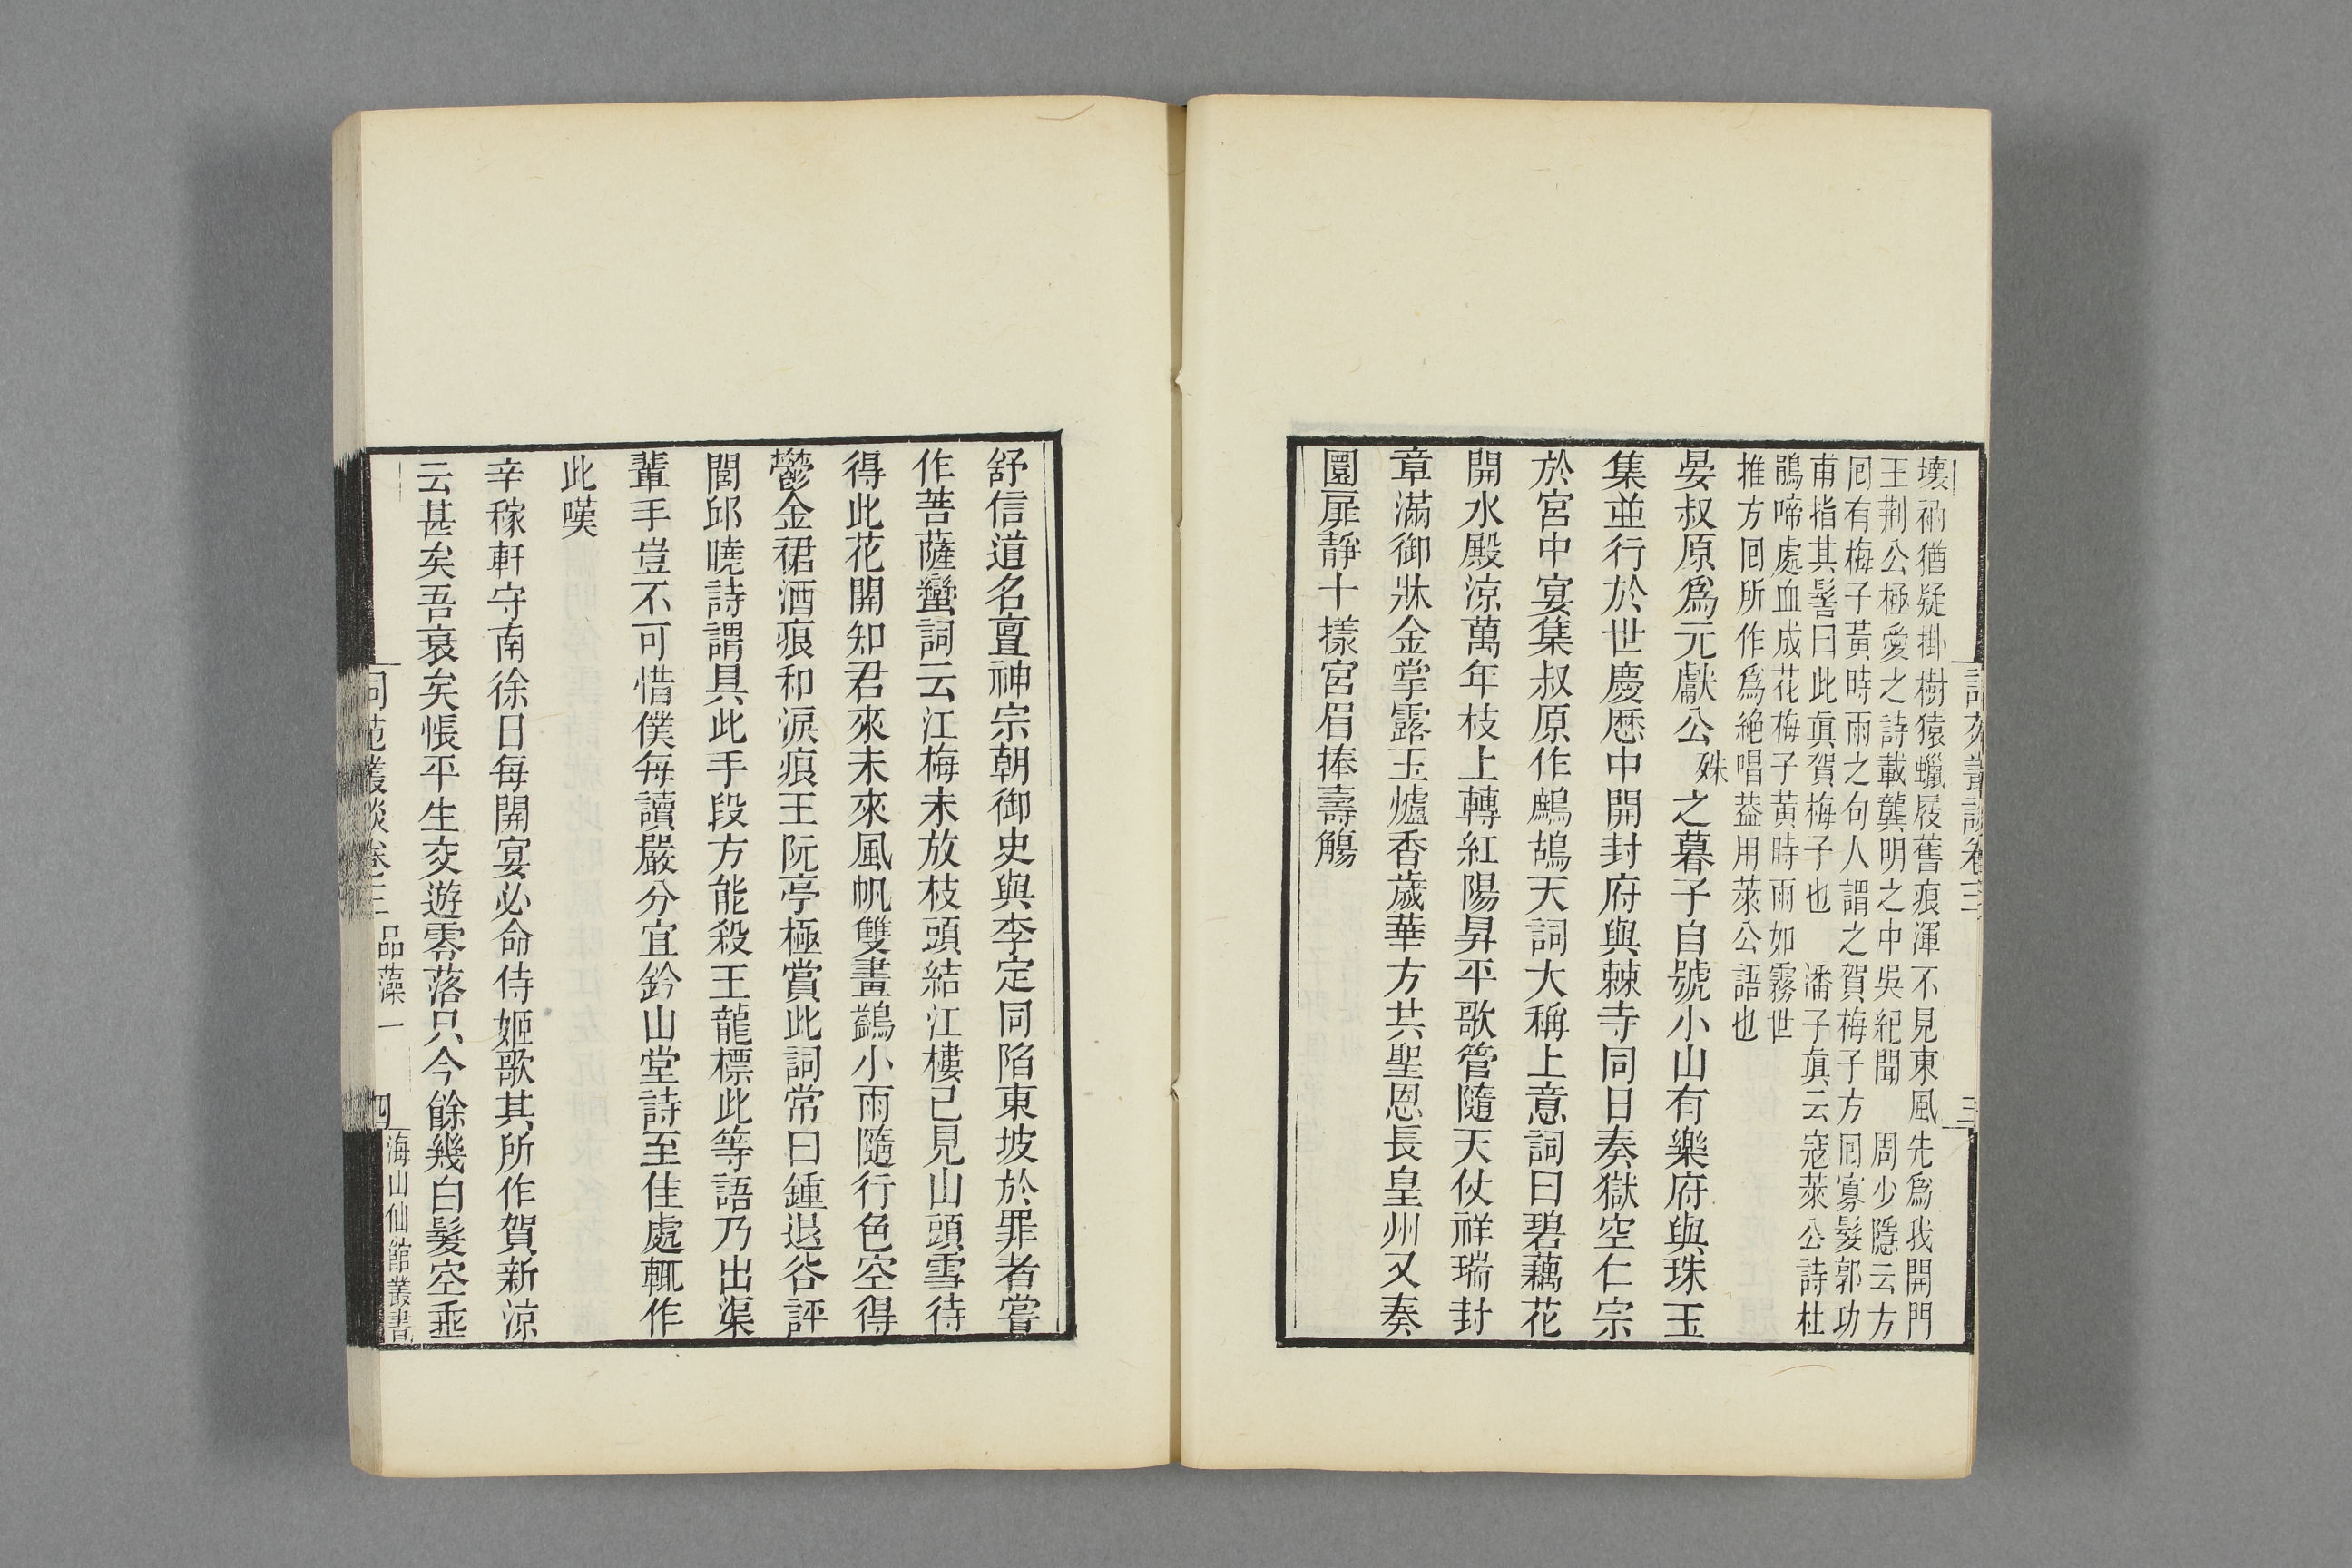 詞苑叢談卷三
三
壞衲猶疑掛樹猿蠟屐舊痕渾不見東風先爲我開門
王荆公極愛之詩載龔明之中吳紀聞　周少隱云方
囘有梅子黃時雨之句人謂之賀梅子方囘寡髮郭功
甫指其髻曰此眞賀梅子也　潘子眞云寇萊公詩杜
鵑啼處血成花梅子黃時雨如霧世
推方囘所作爲絶唱葢用萊公語也
晏叔原爲元獻公殊之暮子自號小山有樂府與珠玉
集並行於世慶厯中開封府與棘寺同日奏獄空仁宗
於宮中宴集叔原作鷓鴣天詞大稱上意詞曰碧藕花
開水殿涼萬年枝上轉紅陽昇平歌管隨天仗祥瑞封
章滿御牀金掌露玉爐香歲華方共聖恩長皇州又奏
圜扉靜十㨾宮眉捧壽觴
舒信道名亶神宗朝御史與李定同陷東坡於罪者嘗
作菩薩蠻詞云江梅未放枝頭結江樓已見山頭雪待
得此花開知君來未來風帆雙畫鷁小雨隨行色空得
鬱金裙酒痕和淚痕王阮亭極賞此詞常曰鍾退谷評
閭邱曉詩謂具此手段方能殺王龍標此等語乃出渠
輩手豈不可惜僕每讀嚴分宜鈐山堂詩至佳處輒作
此嘆
辛稼軒守南徐日每開宴必命侍姬歌其所作賀新涼
云甚矣吾衰矣悵平生交遊零落只今餘幾白髮空垂
詞苑叢談卷三　品藻一　四　海山仙館叢書